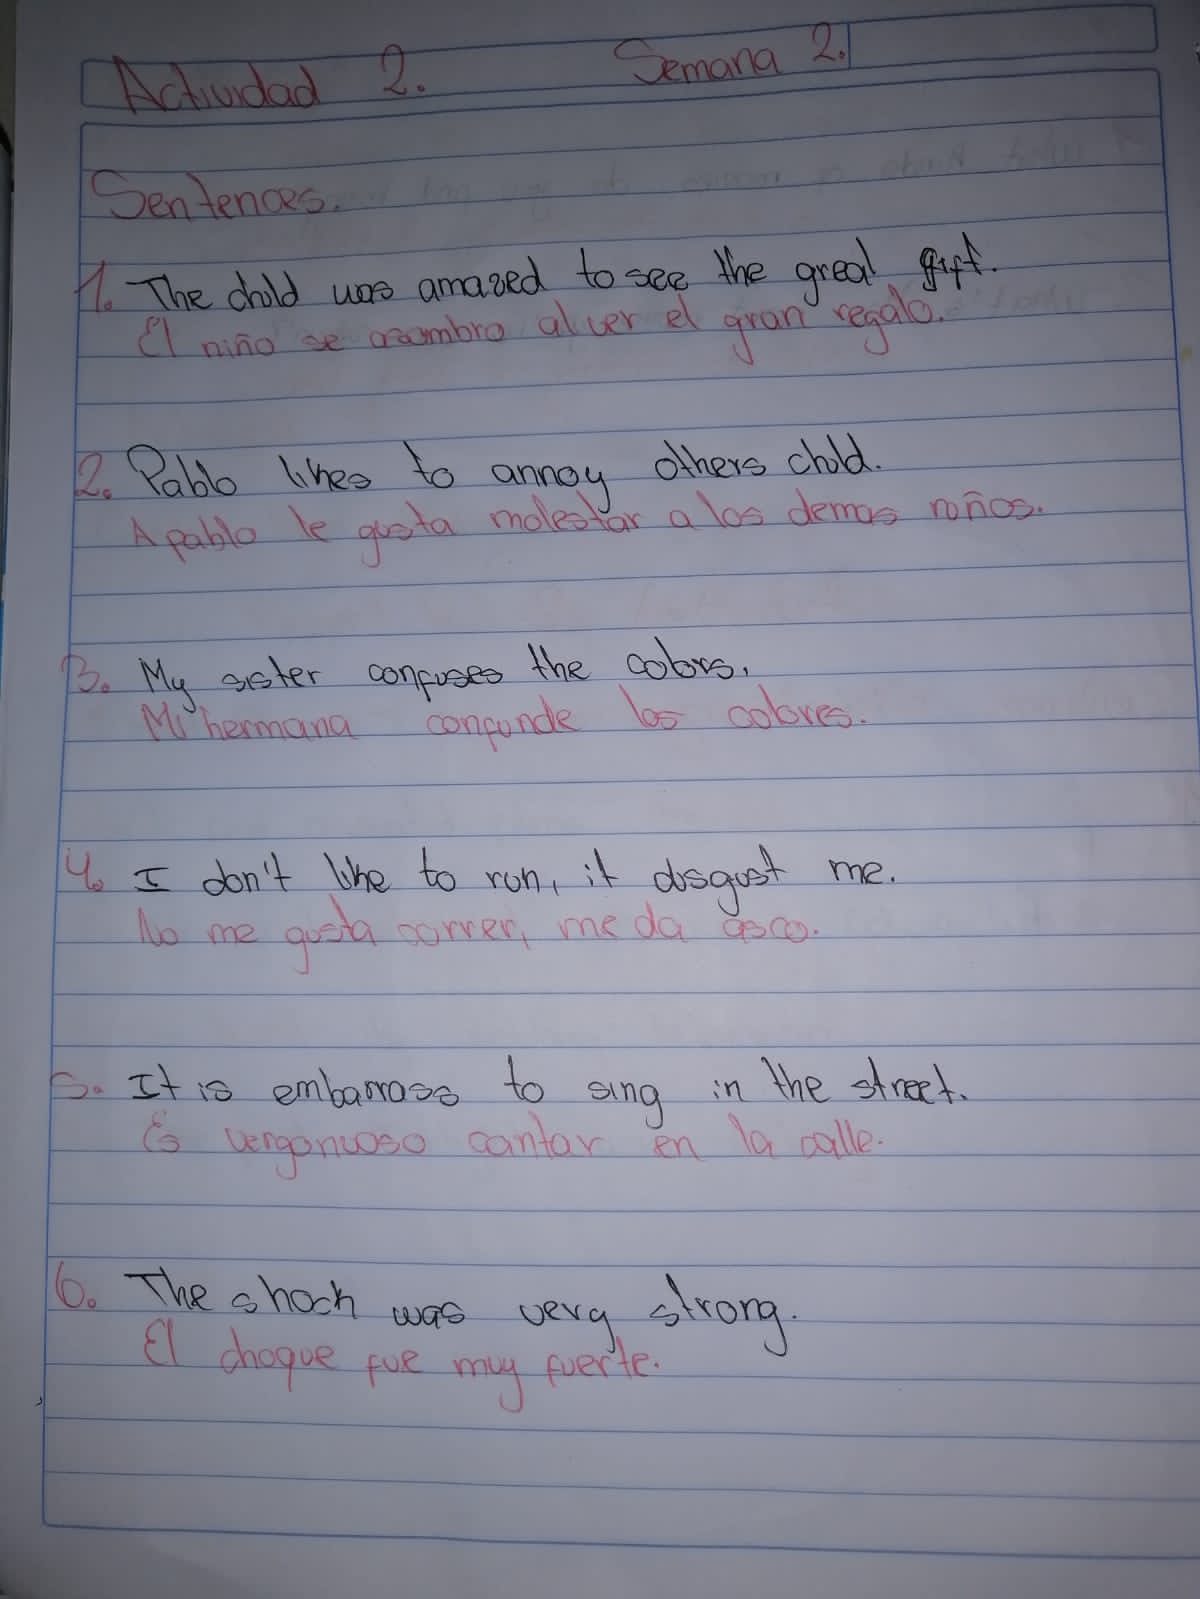 Actividad 2. Semana 2.
Sentences.
1. The child was amazed to see the great gift.
El niño se asombro al ver el gran regalo.
2. Pablo likes to annoy others child.
A pablo le gusta molestar a los demas niños.
3. My sister confuses the colors.
Mi hermana confunde los colores.
4. I don't like to run, it disgust me.
No me gusta correr, me da asco.
5. It is embarrass to sing in the street.
Es vergonuoso cantar en la calle.
6. The shock was very strong.
El choque fue muy fuerte.